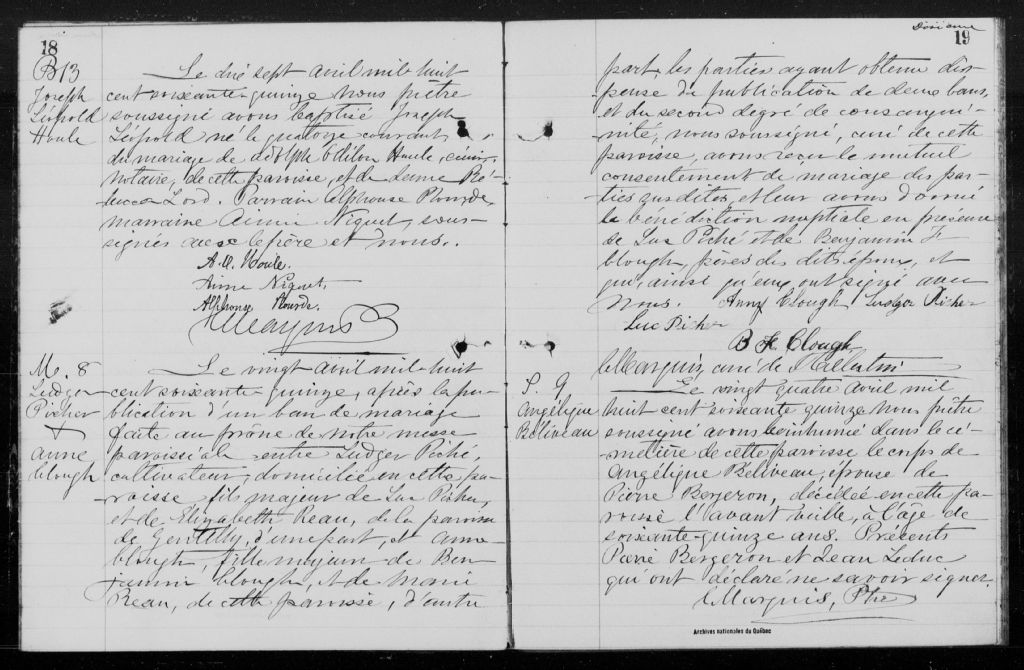 18
B13
Joseph
Léopold
Houle
Le dix sept avril mil huit
cent soixante-quinze nous prêtre
soussigné avons baptisé Joseph
Léopold né le quatorze courant,
du mariage de Adolphe Odilon Houle, écuier,
notaire, de cette paroisse, et de dame Ré-
becca Lord. Parrain Alphonse Plourde,
marraine Aimée Niquet, sous-
signés avec le père et nous.
A. O. Houle.
Aimée Niquet,
Alphonse Plourde.
C Marquis
M. 8
Ludger
Pichér
+
Anne
Clough
Le vingt avril mil huit
cent soixante-quinze, après la pu-
blication d'un ban de mariage
faite au prône de notre messe
paroissiale entre Ludger Piché,
cultivateur, domicilié en cette pa-
roisse fils majeur de Luc Piché,
et de Elizabeth Reau, de la paroisse
de Gentilly, d'une part, et Anne
Clough, fille majeure de Ben-
jamin Clough, et de Marie
Reau, de cette paroisse, d'autre
19
part, les parties ayant obtenu dis-
pense de publication de deux bans,
et du second degré de consangui-
nité, nous soussigné, curé de cette
paroisse, avons reçu le mutuel
consentement de mariage des par-
ties susdites, et leur avons donné
la bénédiction nuptiale en présence
de Luc Piché et de Benjamin F
Clough, pères des dits époux, et
qui, ainsi qu'eux ont signé avec
nous. Anny Clough Ludger Richer
Luc Richer
B F Clough
C Marquis curé de St Célestin
S. 9
Angélique
Béliveau
Le vingt quatre avril mil
huit cent soixante quinze nous prêtre
soussigné avons inhumé dans le ci-
metière de cette paroisse le corps de
Angélique Beliveau, épouse de
Pierre Bergeron, décédée en cette pa-
roisse l'avant veille, à l'âge de
soixante-quinze ans. Présents
Pierre Bergeron et Jean Leduc
qui ont déclaré ne savoir signer.
C Marquis, Ptre
Archives nationales du Québec